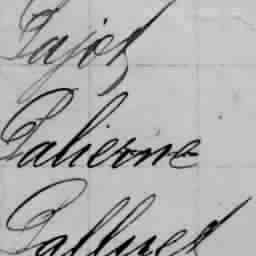 Pajot
Palierne
Palluel